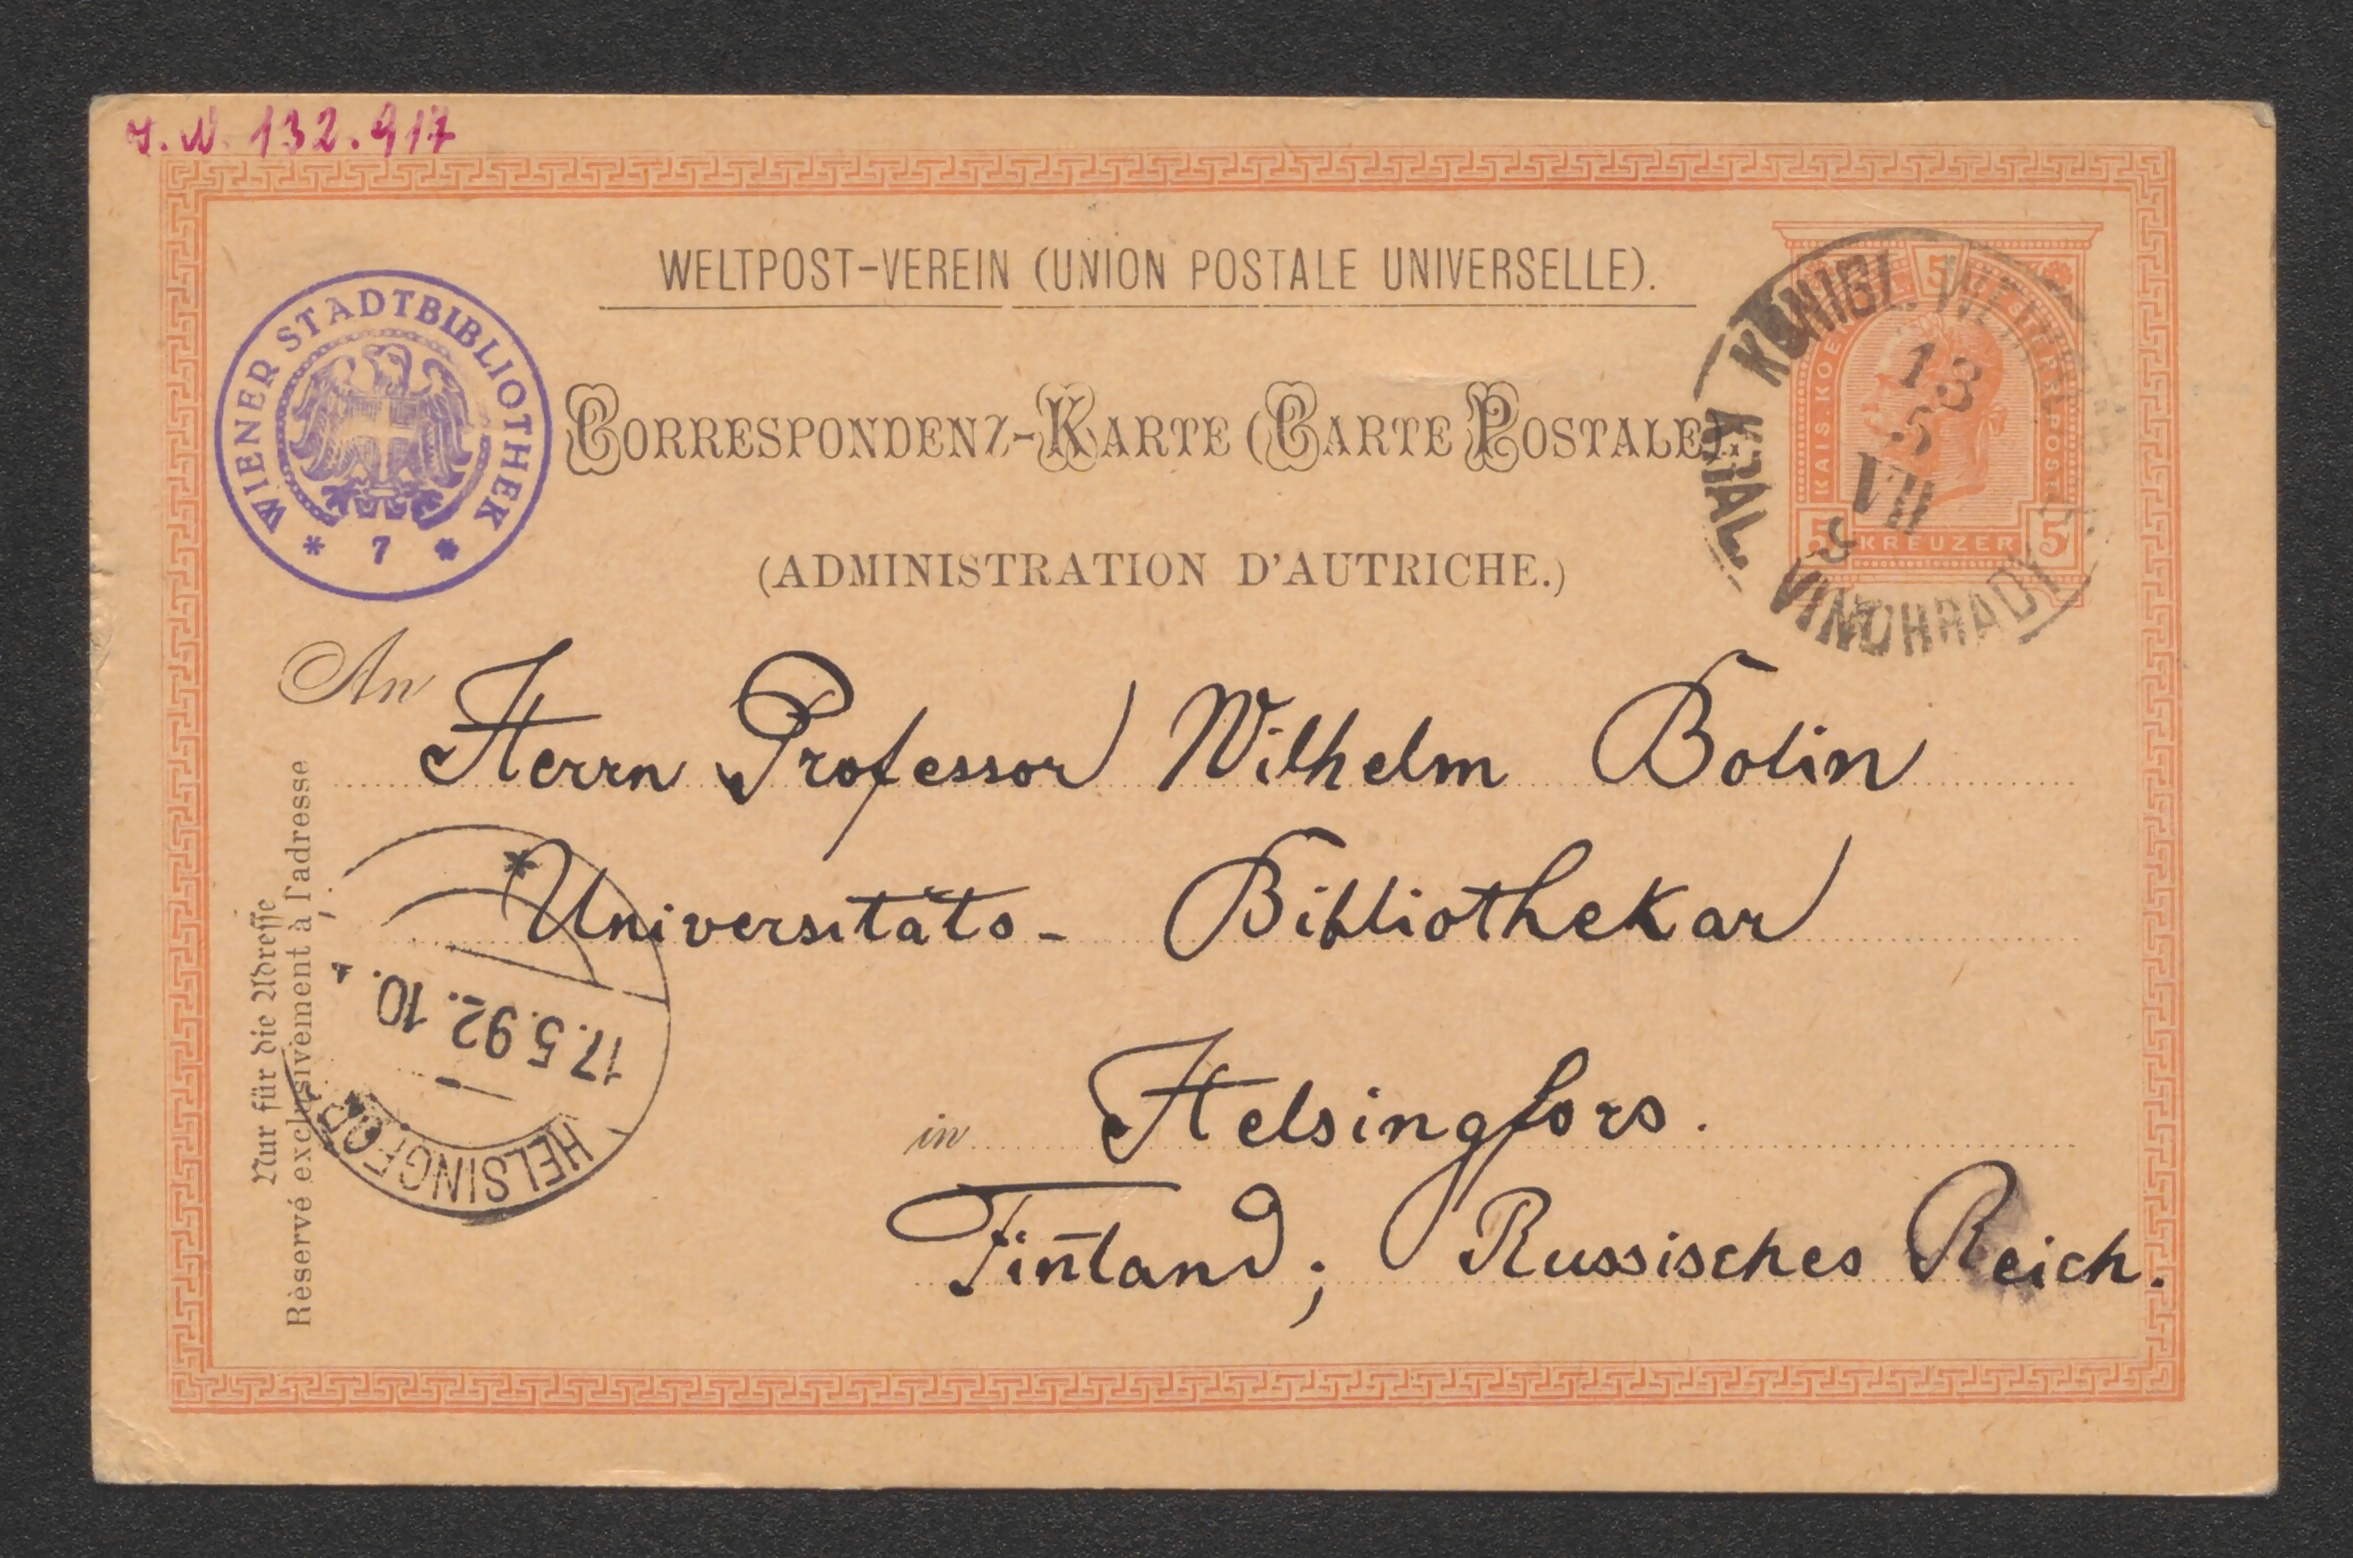 J. N. 132.917
WELTPOST-VEREIN (UNION POSTALE UNIVERSELLE).
WIENER STADTBIBLIOTHEK
* 7 *
CORRESPONDENZ-KARTE (CARTE POSTALE).
(ADMINISTRATION D'AUTRICHE.)
5
KREUZER
5
KÖNIGL. WEINBERGE
13
5
VII
KRÁL. VINOHRADY
An Herrn Professor Wilhelm Bolin
Universitäts- Bibliothekar
in Helsingfors.
Finland; Russisches Reich.
Nur für die Adresse
Rèservé exclusivement à l'adresse
HELSINGFORS
17.5.92. 10.